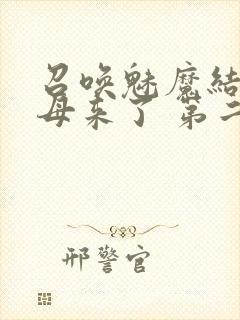 召唤魅魔结
母来了 第二
邢警官